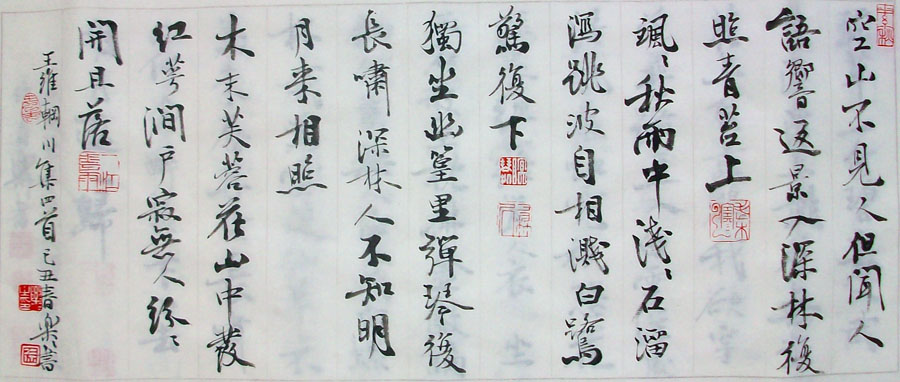 空山不見人但聞人
語響返景入深林復
照青苔上
颯〻秋雨中淺〻石溜
瀉跳波自相濺白鷺
驚復下
獨坐幽篁里彈琴復
長嘯深林人不知明
月来相照
木末芙蓉花山中發
紅萼澗戶寂無人紛〻
開且落
王維輞川集四首己丑春樂書